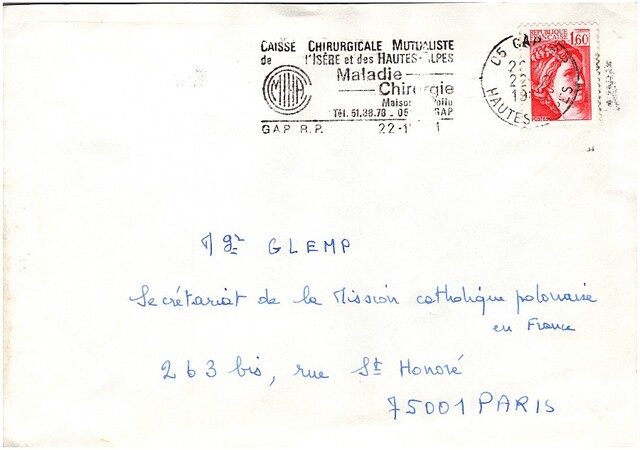 CAISSE CHIRURGICALE MUTUALISTE
de l'ISÈRE et des HAUTES-ALPES
Maladie
Chirurgie
Maison
Tél. 51.38.78 - 05 GAP
GAP R.P. 22-1
05 GAP
HAUTES
REPUBLIQUE
FRANÇAISE
1,60
POSTES
Mgr GLEMP
Secrétariat de la Mission catholique polonaise
en France
263 bis, rue St Honoré
75001 PARIS